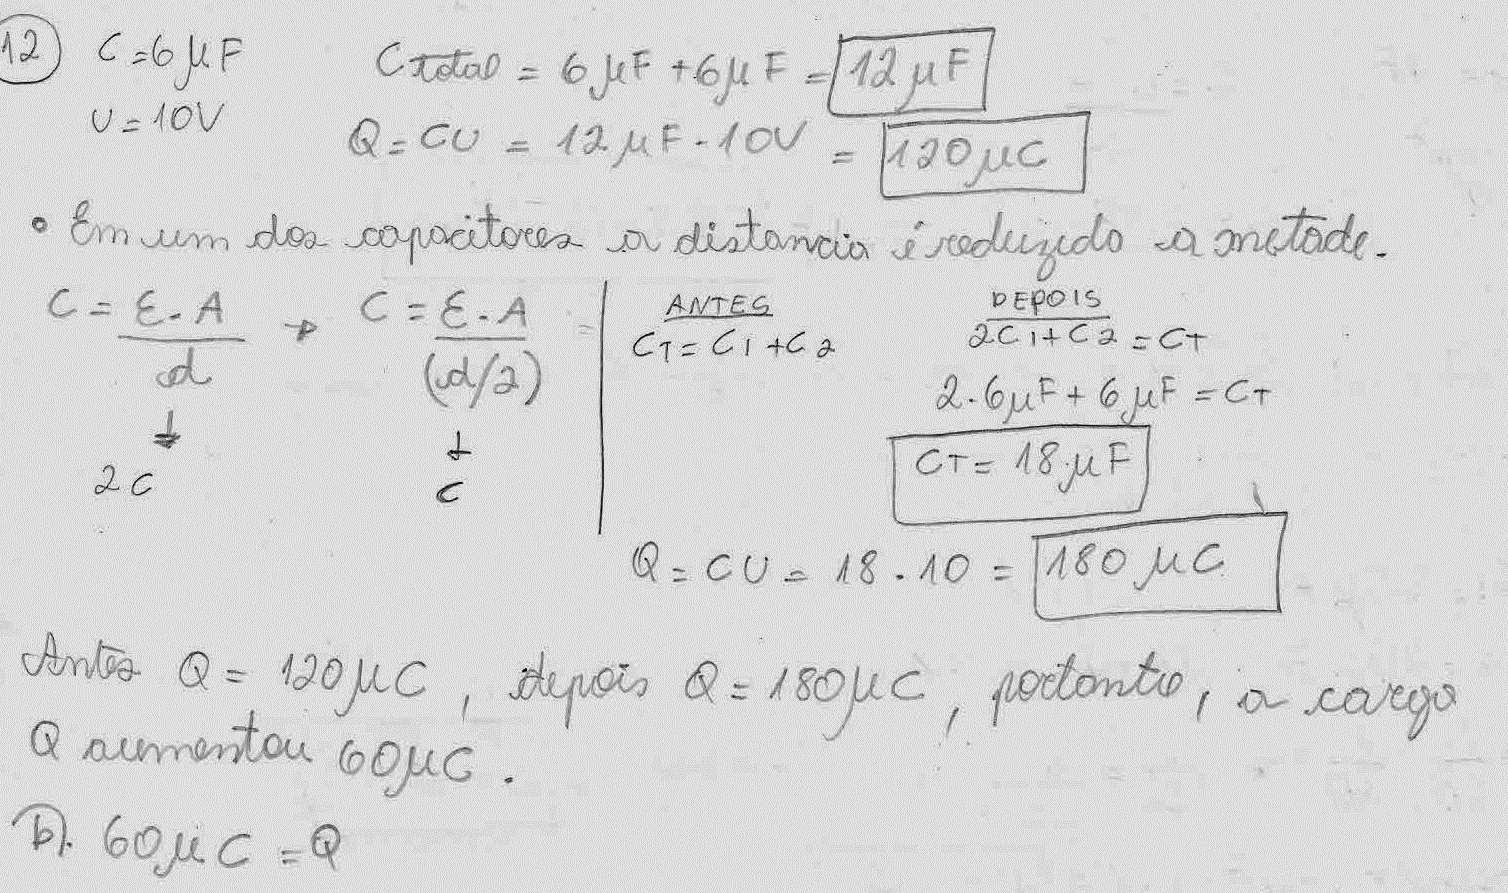 12 C=6μF Ctotal = 6μF+6μF = 12μF
U=10V Q=CU = 12μF·10V = 120μC
• Em um dos capacitores a distancia é reduzido a metade.
C = ε.A / d → C = ε.A / (d/2)
↓ ↓
2C C
ANTES
CT = C1 + C2
DEPOIS
2C1 + C2 = CT
2.6μF + 6μF = CT
CT = 18μF
Q = CU = 18.10 = 180μC
Antes Q = 120μC, depois Q = 180μC, portanto, a carga
Q aumentou 60μC.
b). 60μC = Q